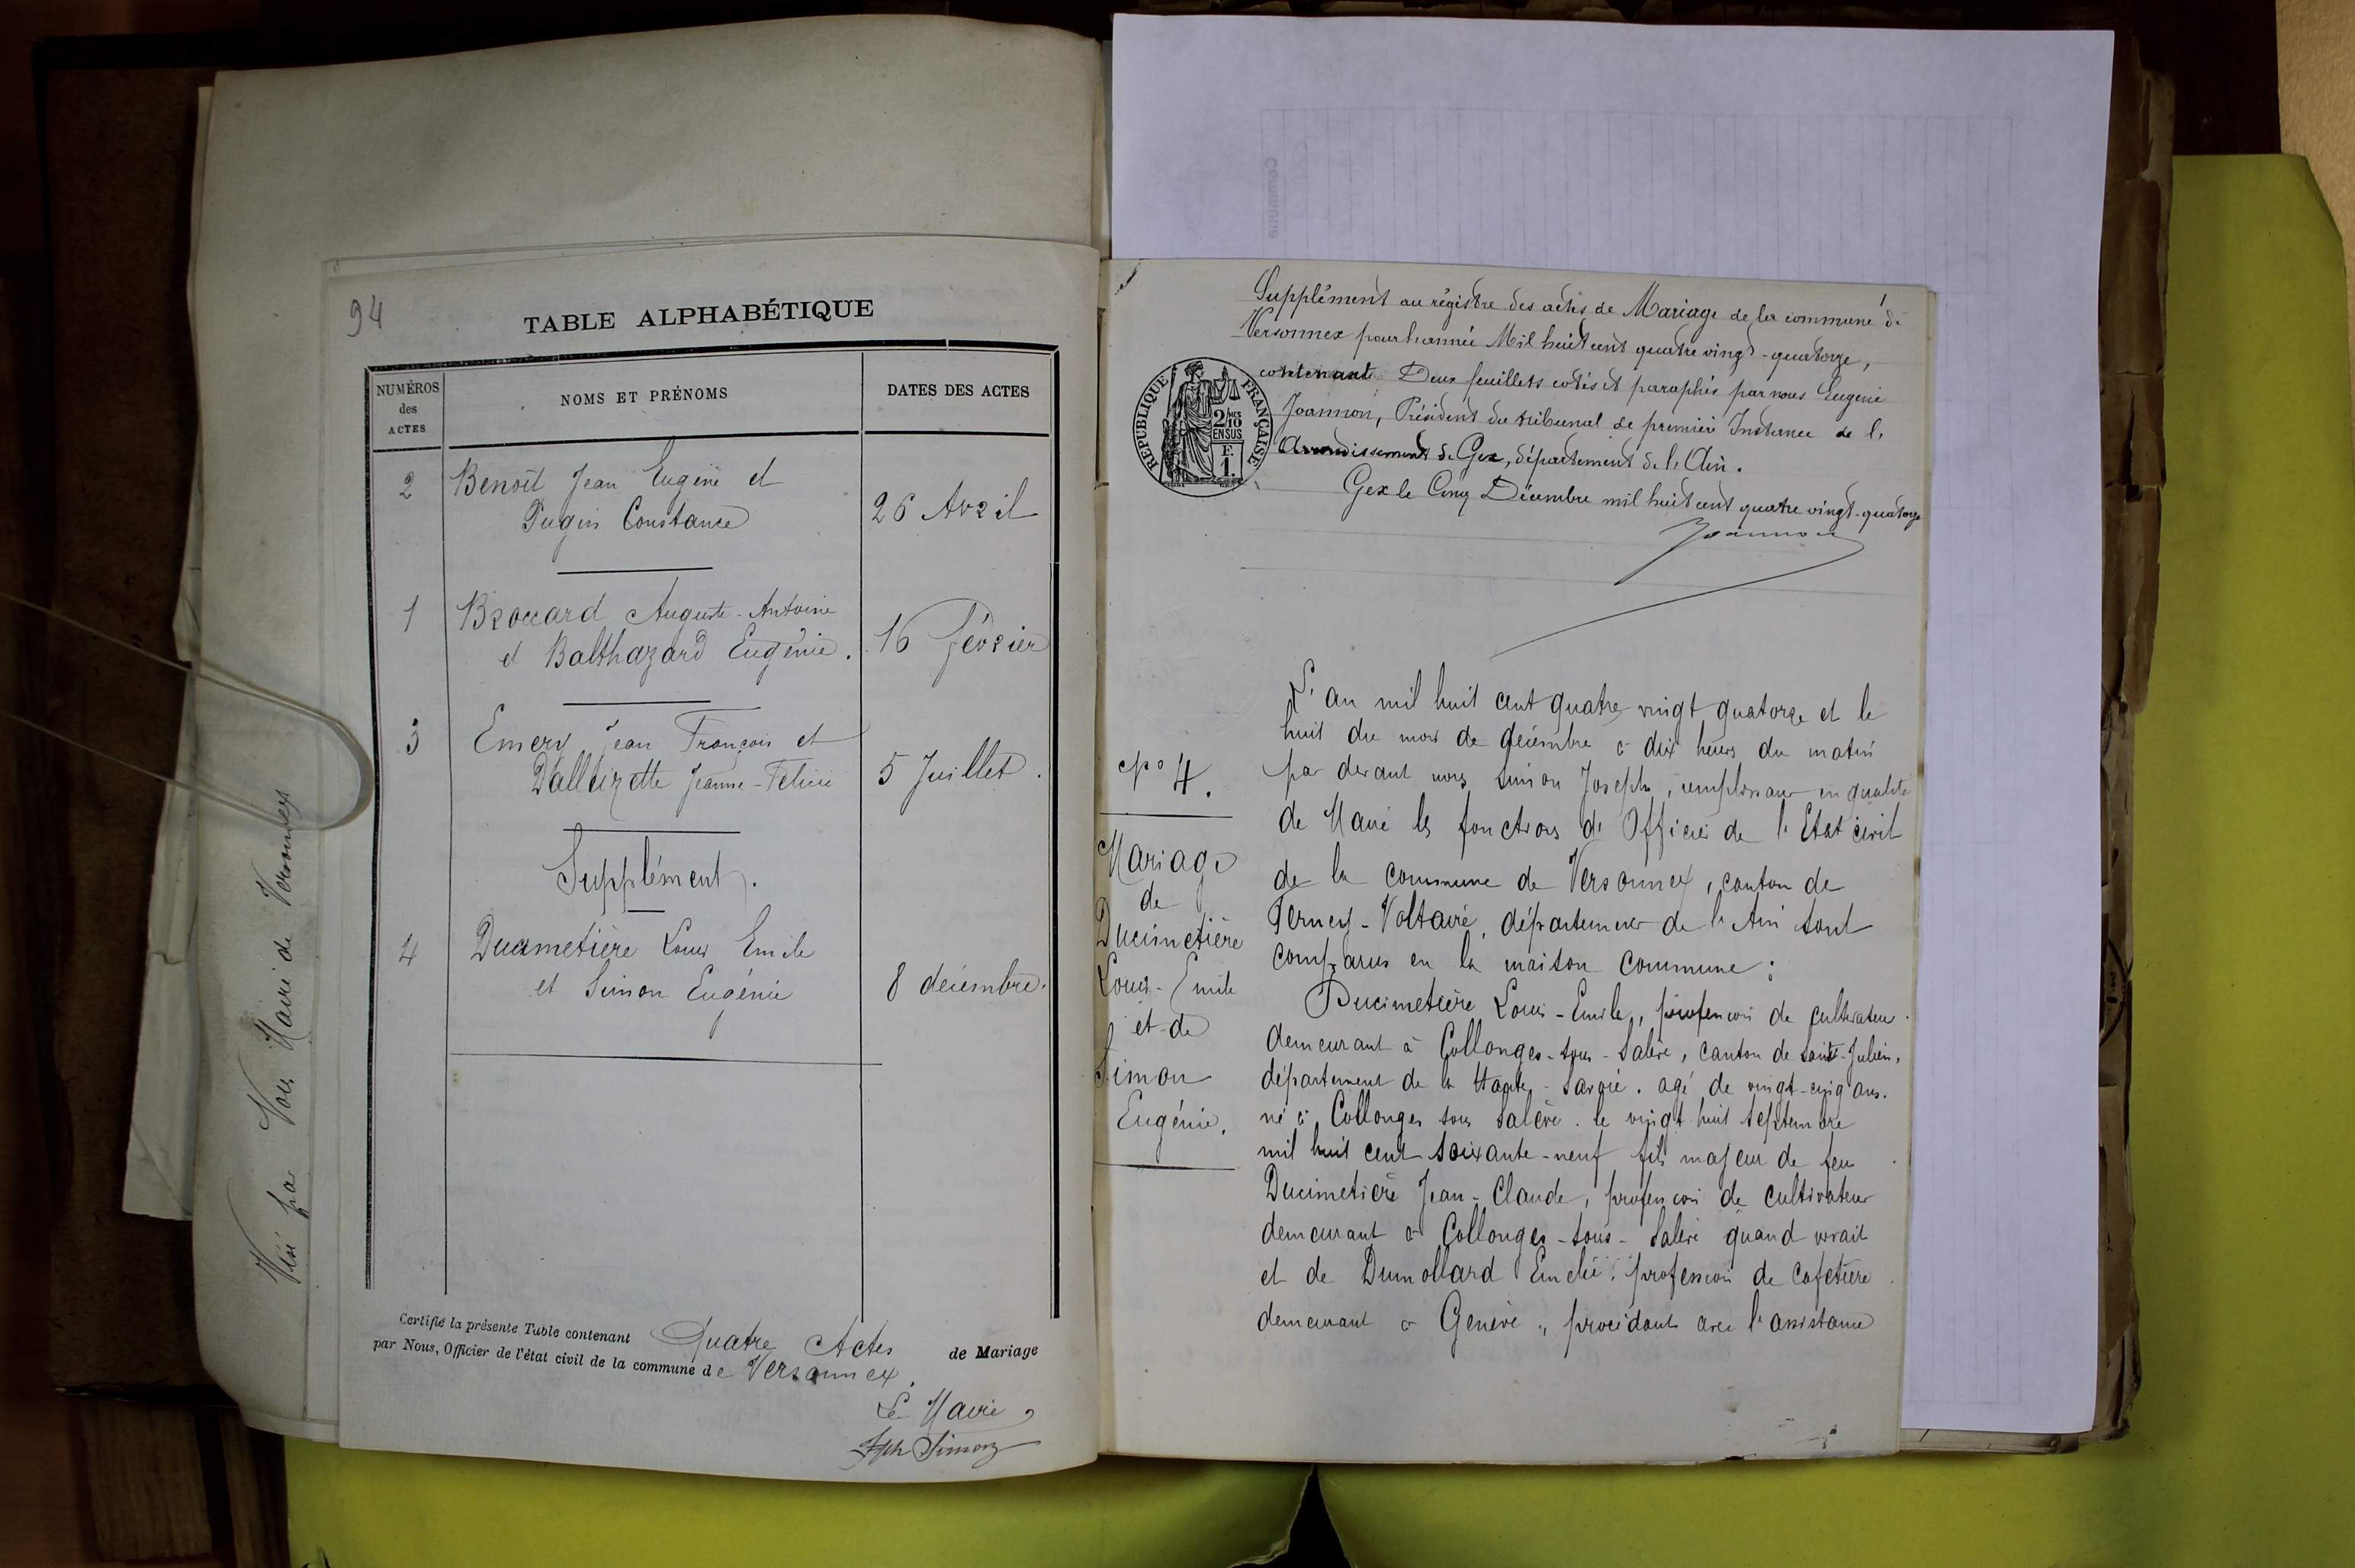 94
TABLE ALPHABÉTIQUE
NUMÉROS
des
ACTES
NOMS ET PRÉNOMS
DATES DES ACTES
2 Benoît Jean Eugène et
Pugin Constance
26 Avril
1 Brouard Auguste-Antoine
et Balthazard Eugénie.
16 février
3 Emery Jean François et
Dalluzette Jeanne-Félicie
5 Juillet.
Supplément.
4 Ducimetière Louis Emile
et Simon Eugénie
8 décembre.
Certifié la présente Table contenant Quatre Actes de Mariage
par Nous, Officier de l'état civil de la commune de Versonnex.
Le Maire,
Jph Simon
Visé par Nous Maire de Versonnex
Supplément au régistre des actes de Mariage de la commune de
Versonnex pour l'année Mil huit cent quatre vingt-quatorze,
contenant Deux feuillets cotés et paraphés par nous Eugène
Joannon, Président du tribunal de première Instance de l'
Arrondissement de Gex, département de l'Ain.
Gex le Cinq Décembre mil huit cent quatre vingt-quatorze
Joannon
RÉPUBLIQUE FRANÇAISE
2/10
EN SUS
F.
1.
L'an mil huit cent quatre vingt quatorze et le
huit du mois de décembre à dix heures du matin
par devant nous Simon Joseph, remplissant en qualité
de Maire les fonctions de Officier de l'Etat civil
de la commune de Versonnex, canton de
Ferney-Voltaire, département de l'Ain sont
comparus en la maison commune :
Ducimetière Louis-Emile, profession de cultivateur
demeurant à Collonges-sous-Salève, canton de Saint-Julien,
département de la Haute-Savoie. agé de vingt-cinq ans.
né à Collonges sous Salève. le vingt huit septembre
mil huit cent soixante-neuf fils majeur de feu
Ducimetière Jean-Claude, profession de cultivateur
demeurant à Collonges-sous-Salève quand vivait
et de Dumollard Emelie, profession de cafetière
demeurant à Genève, procédant avec l'assistance
No 4.
Mariage
de
Ducimetière
Louis-Emile
et de
Simon
Eugénie.